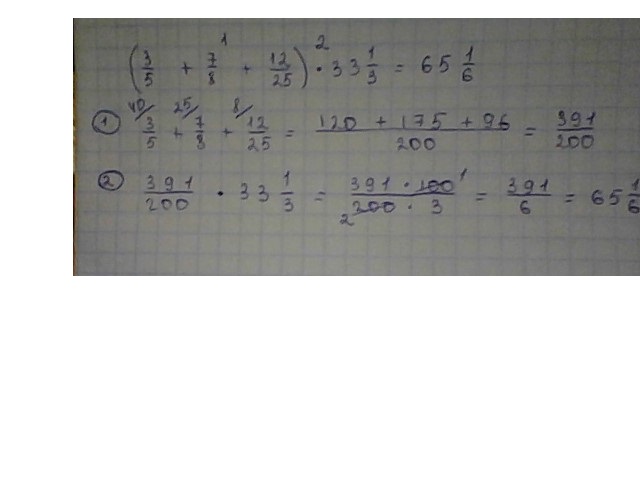 (3/5 +¹ 7/8 + 12/25) ·² 33 1/3 = 65 1/6
① 40/ 3/5 + 25/ 7/8 + 8/ 12/25 = (120 + 175 + 96)/200 = 391/200
② 391/200 · 33 1/3 = (391 · 100 1)/(2 200 · 3) = 391/6 = 65 1/6